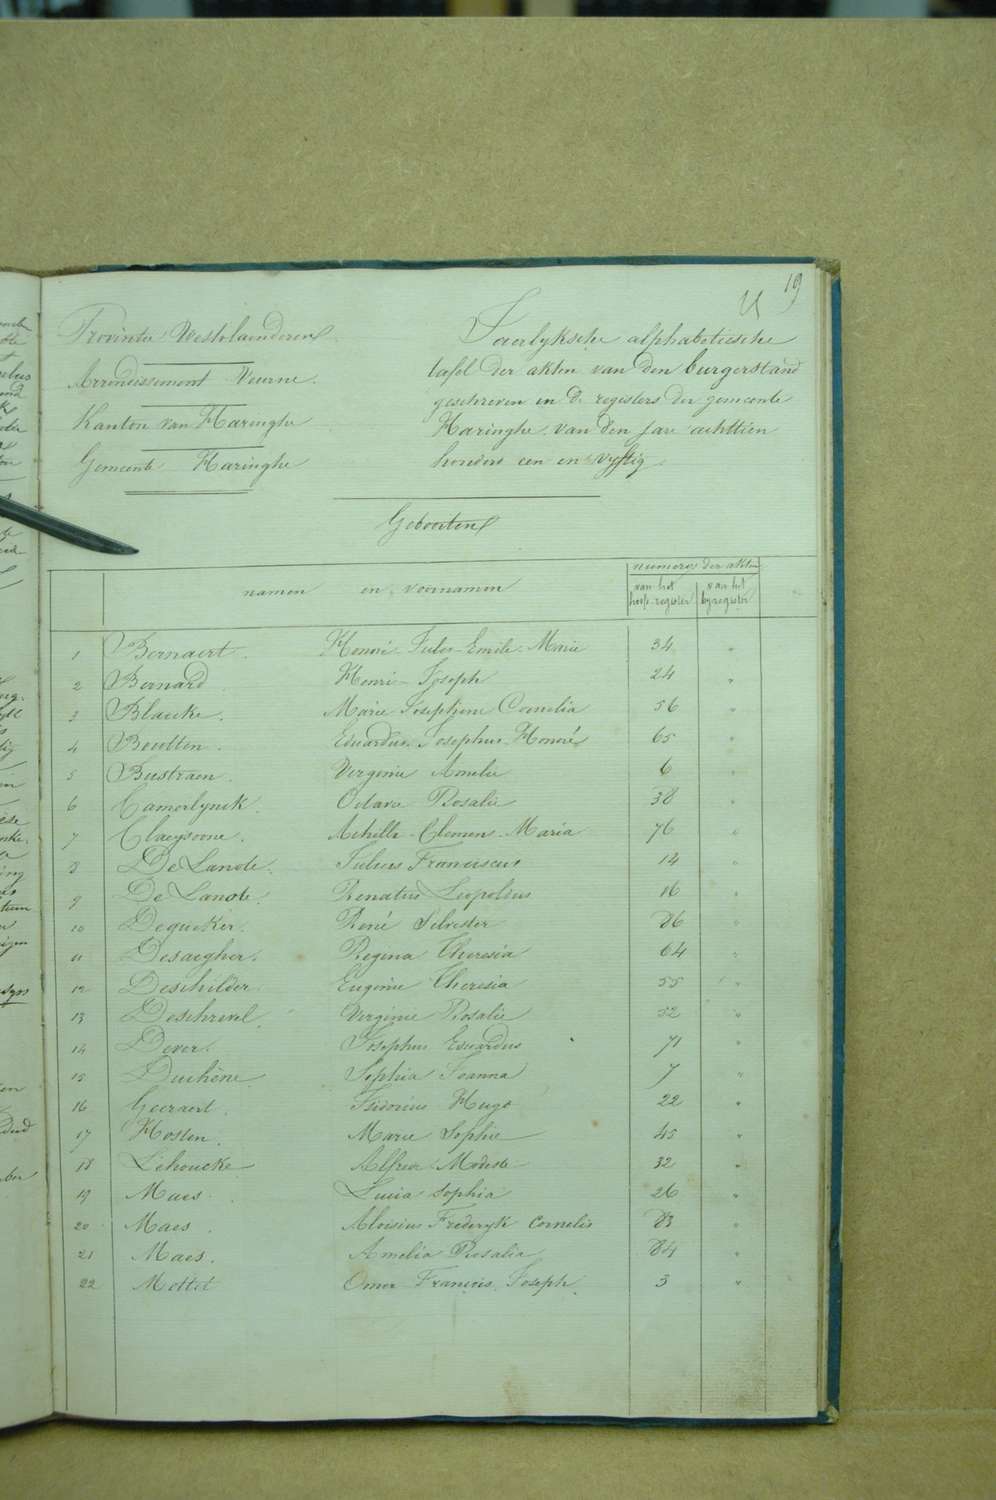 19
Provintie Westvlaenderen
Arrondissement Veurne.
Kanton van Haringhe
Gemeente Haringhe
Jaerlyksche alphabetiesche
tafel der akten van den burgerstand
geschreven in de registers der gemeente
Haringhe van den jare achttien
honderd een en vyftig
Geboorten
namen en voornamen numeros der akten
van het hoof-register van het byregister
1 Bernaert. Honoré Jules Emile Marie 34 "
2 Bernard. Henri Joseph 24 "
3 Blaecke. Marie Josephine Cornelia 56 "
4 Boultin. Eduardus Josephus Honoré 65 "
5 Bustraen. Virginie Amelie 6 "
6 Camerlynck. Octavie Rosalie 38 "
7 Claeysoone. Achille Clemens Maria 76 "
8 De Lanote. Julius Franciscus 14 "
9 De Lanote. Renatus Leopoldus 16 "
10 Dequeker. René Silvester 86 "
11 Desaegher. Regina Theresia 64 "
12 Deschilder. Eugenie Theresia 55 "
13 Deschrevel. Virginie Rosalie 52 "
14 Dever. Josephus Eduardus 71 "
15 Duchêne Sophia Joanna 7 "
16 Geeraert. Isidorius Hugo 22 "
17 Hosten. Marie Sophie 45 "
18 Lehoucke Alfred Modeste 32 "
19 Maes. Lucia Sophia 26 "
20 Maes. Aloisius Frederyk Cornelis 83 "
21 Maes. Amelia Rosalia 84 "
22 Mettet Omer François Joseph. 3 "